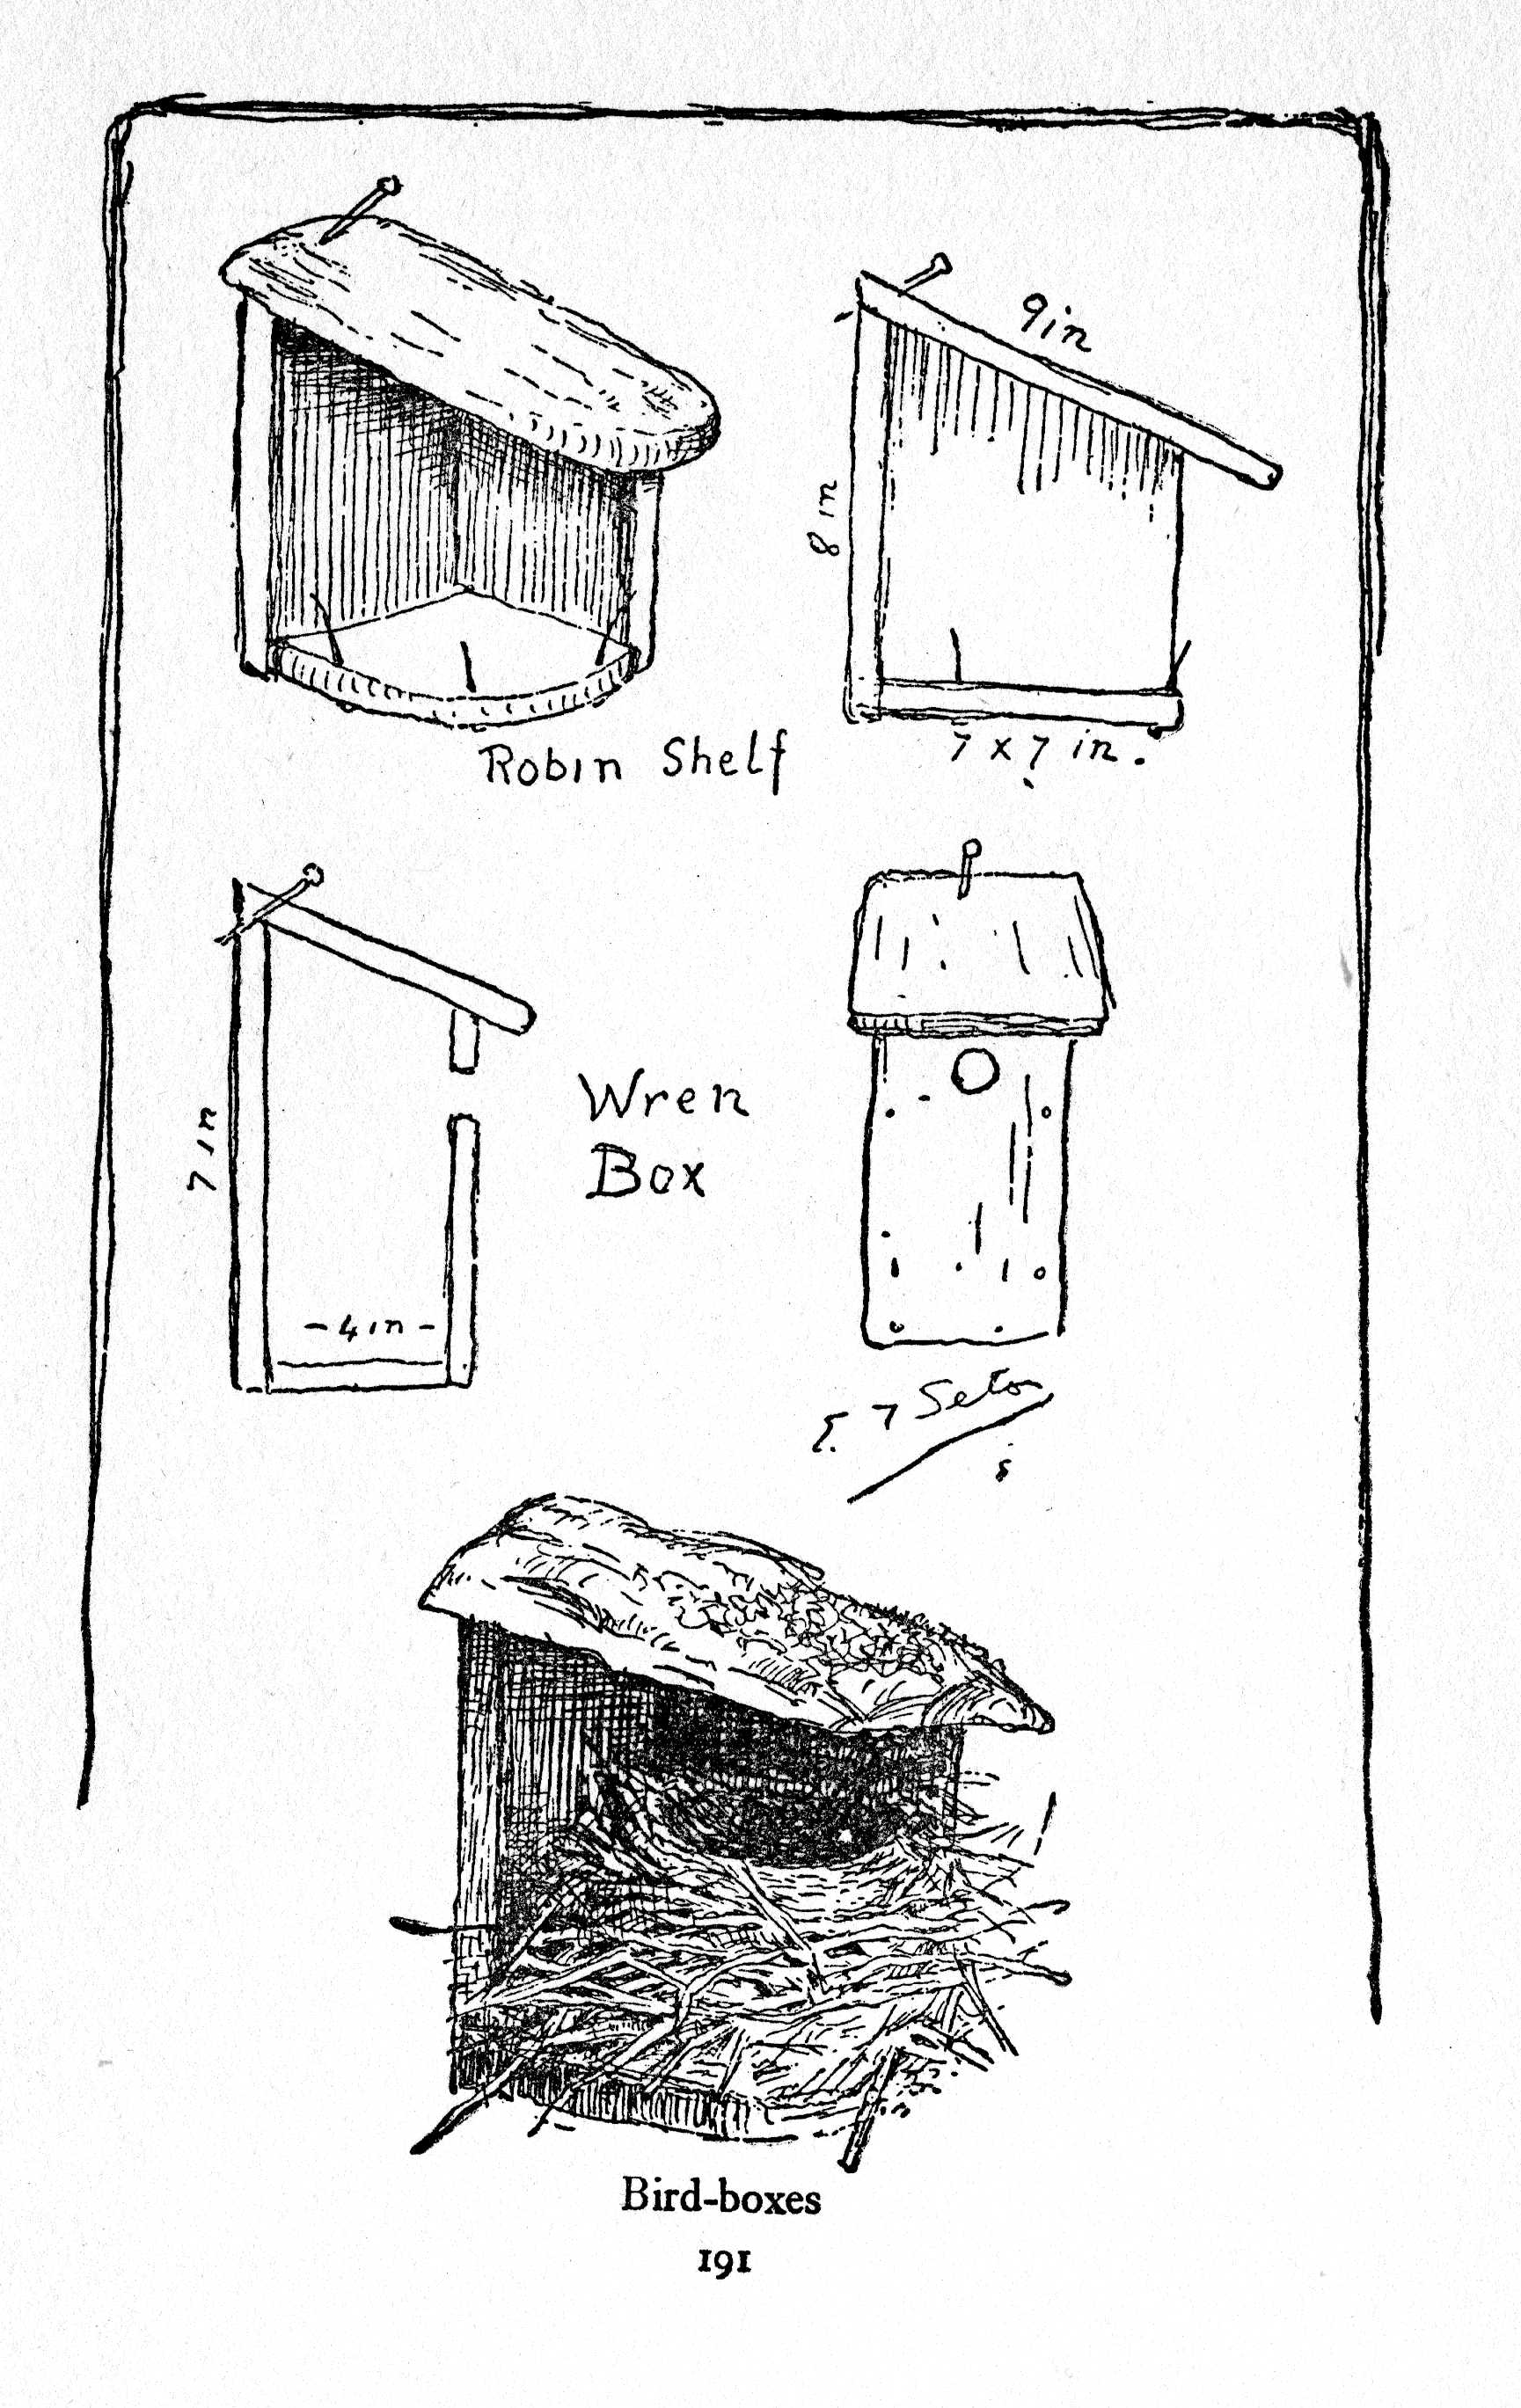 9in
8 in
Robin Shelf
7 x 7 in.
7 in
Wren
Box
-4in-
E. T Seton
Bird-boxes
191